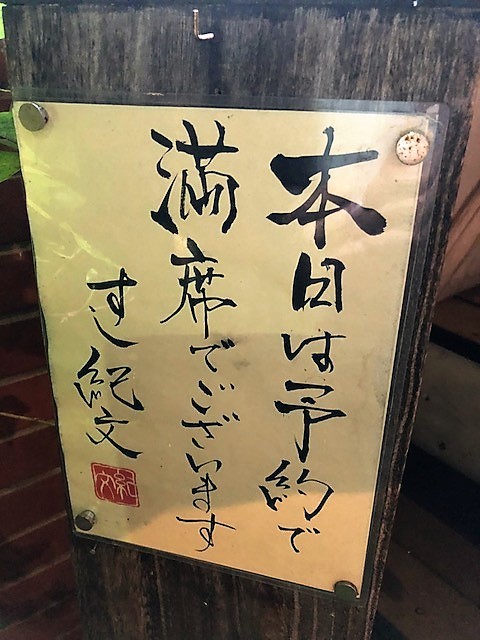 本日は予約で
満席でございます
すし紀文
紀文